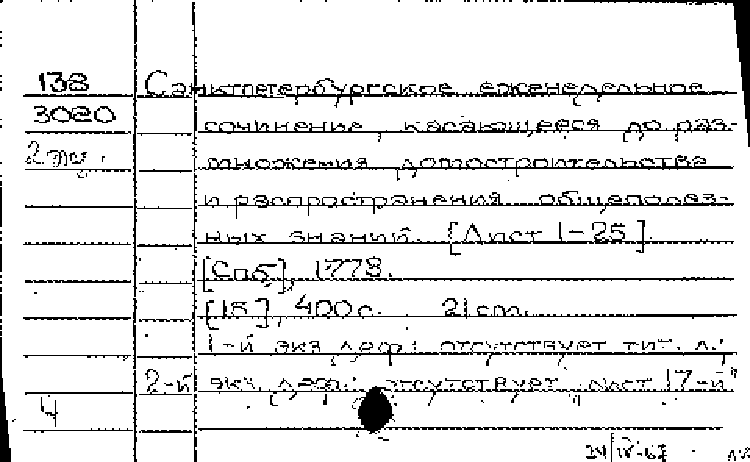 138 Санктпетербургское еженедельное
3080 сочинение, касающееся до раз-
2 экз. множения домостроительства
и распространения общеполез-
ных знаний. [Лист 1-25].
[Спб], 1778.
[15], 400 с. 21 cm.
1-й экз. деф.: отсутствует тит. л.;
2-й экз. деф.: отсутствует "лист 17-й"
4